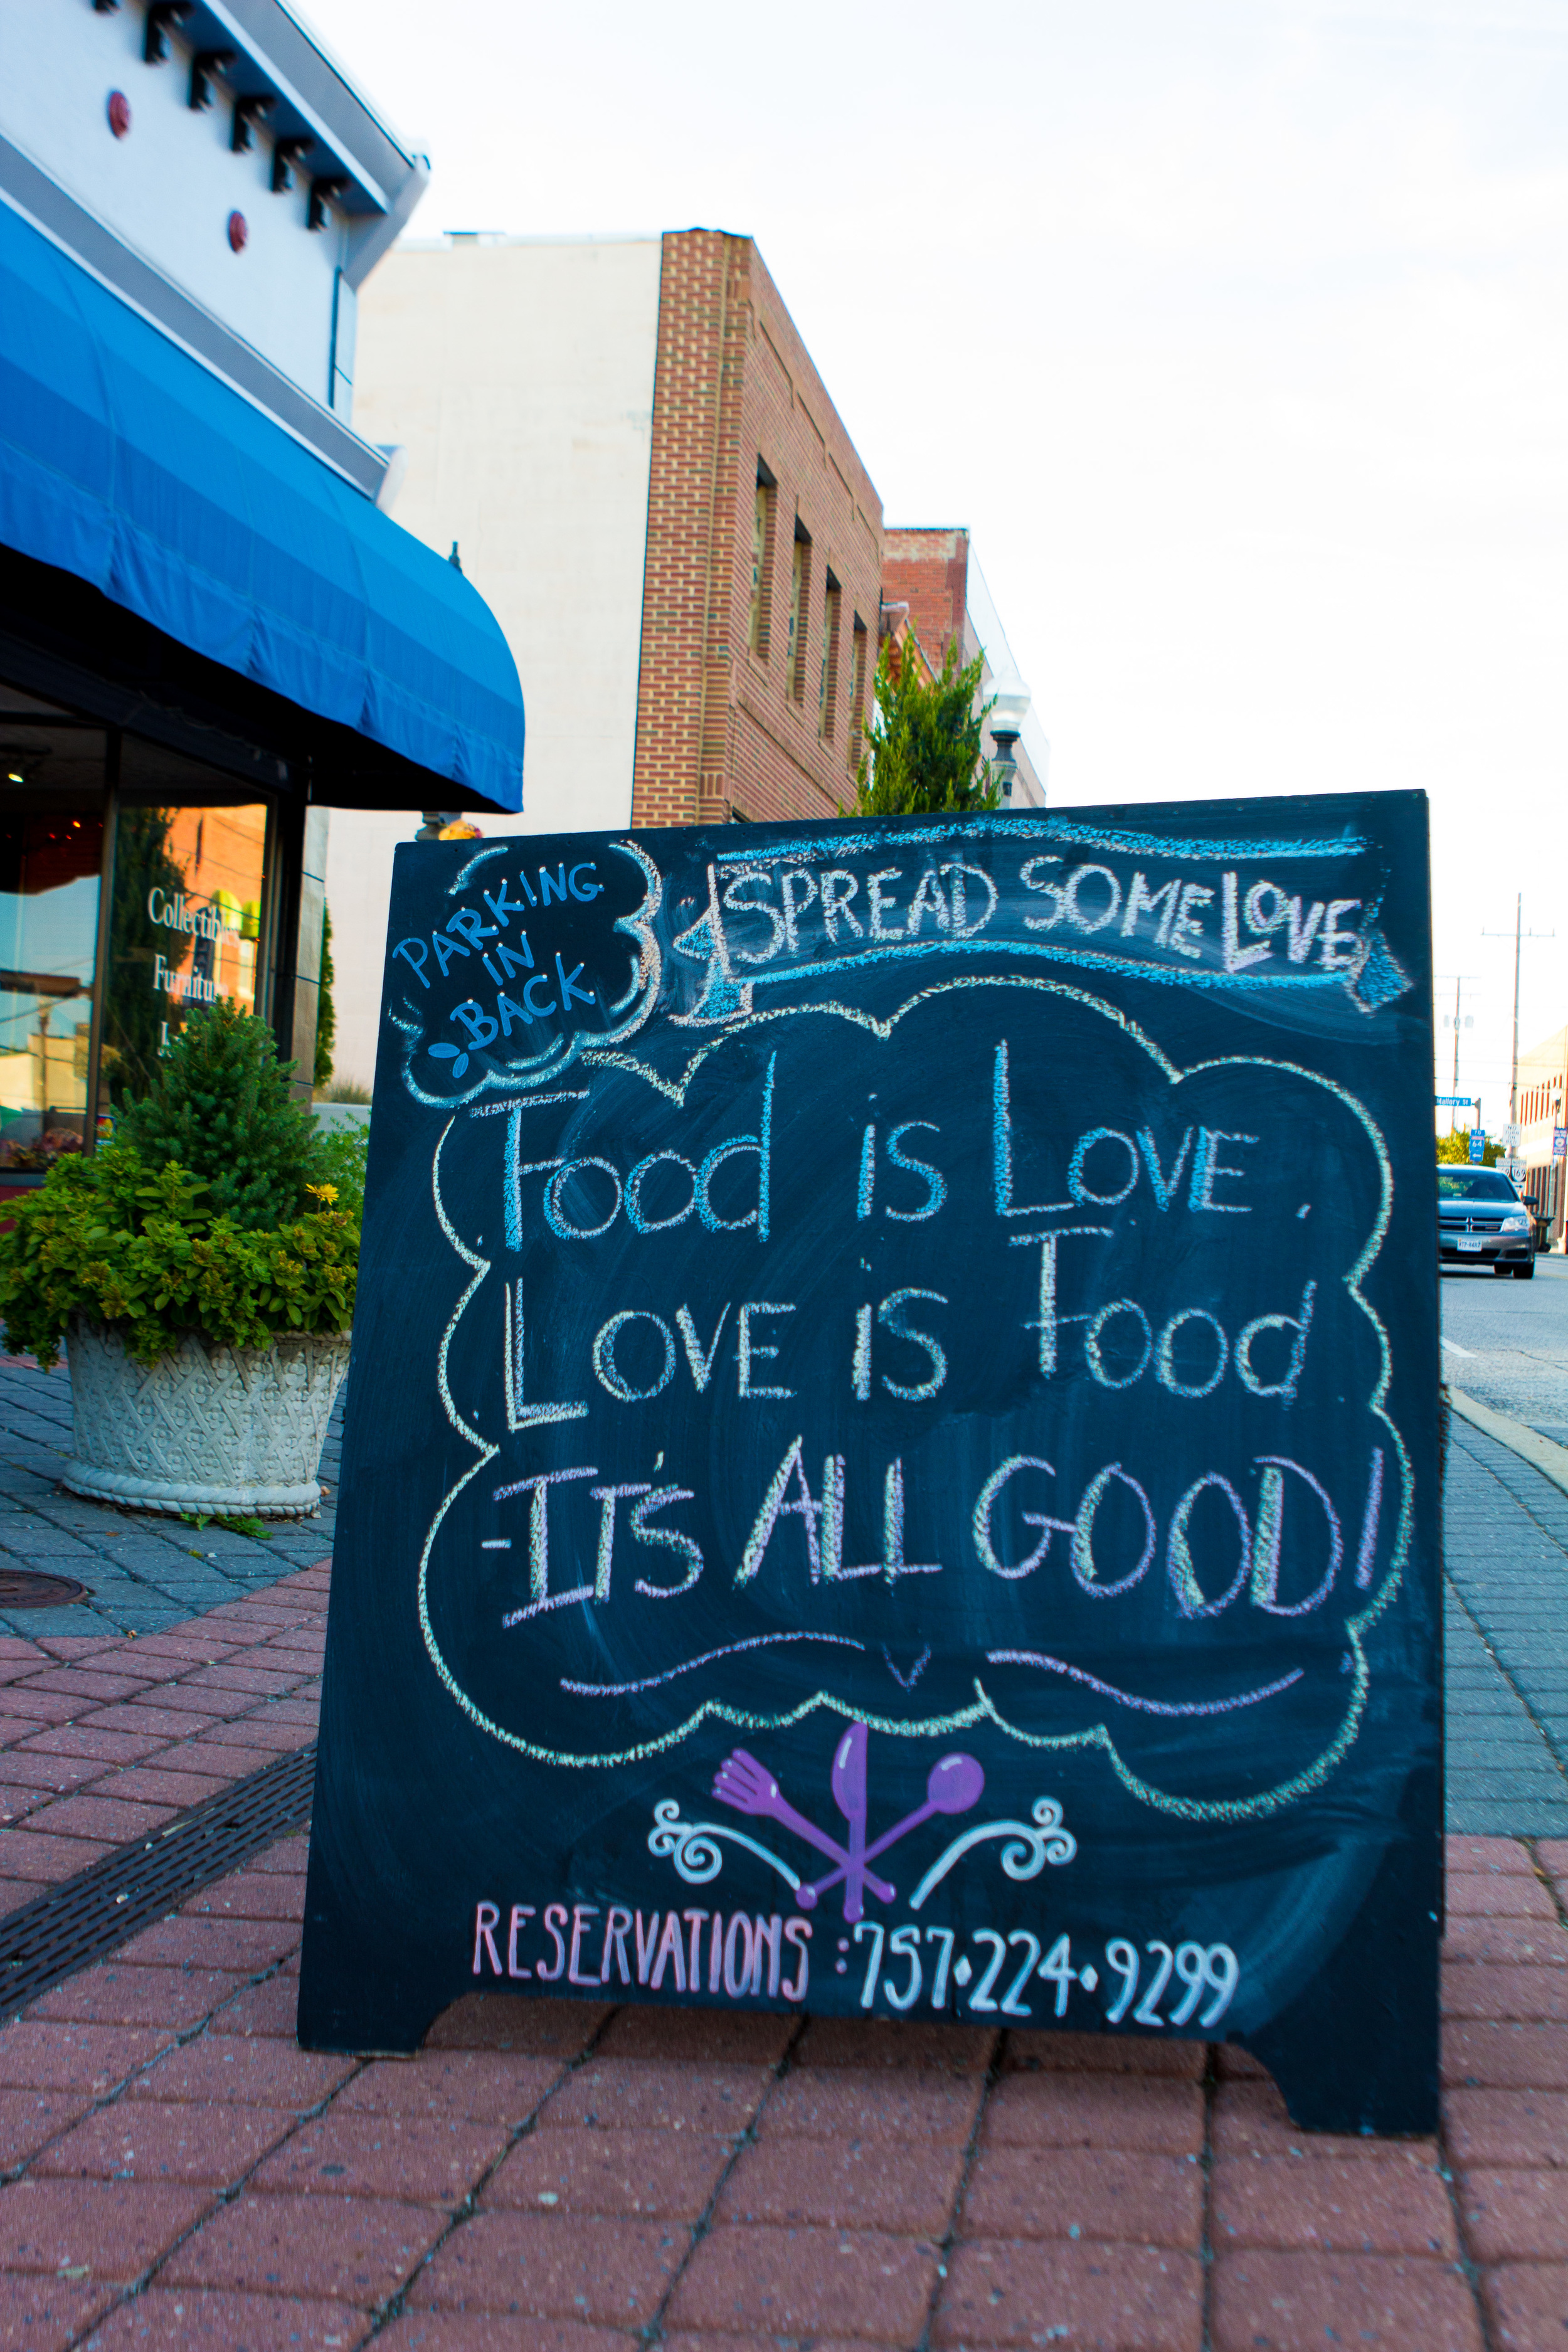 PARKING
IN
BACK
SPREAD SOME LOVE
FOOD IS LOVE.
LOVE IS FOOD
-IT'S ALL GOOD!
RESERVATIONS: 757•224•9299
Collectibles
Furniture
Mallory St
64
169